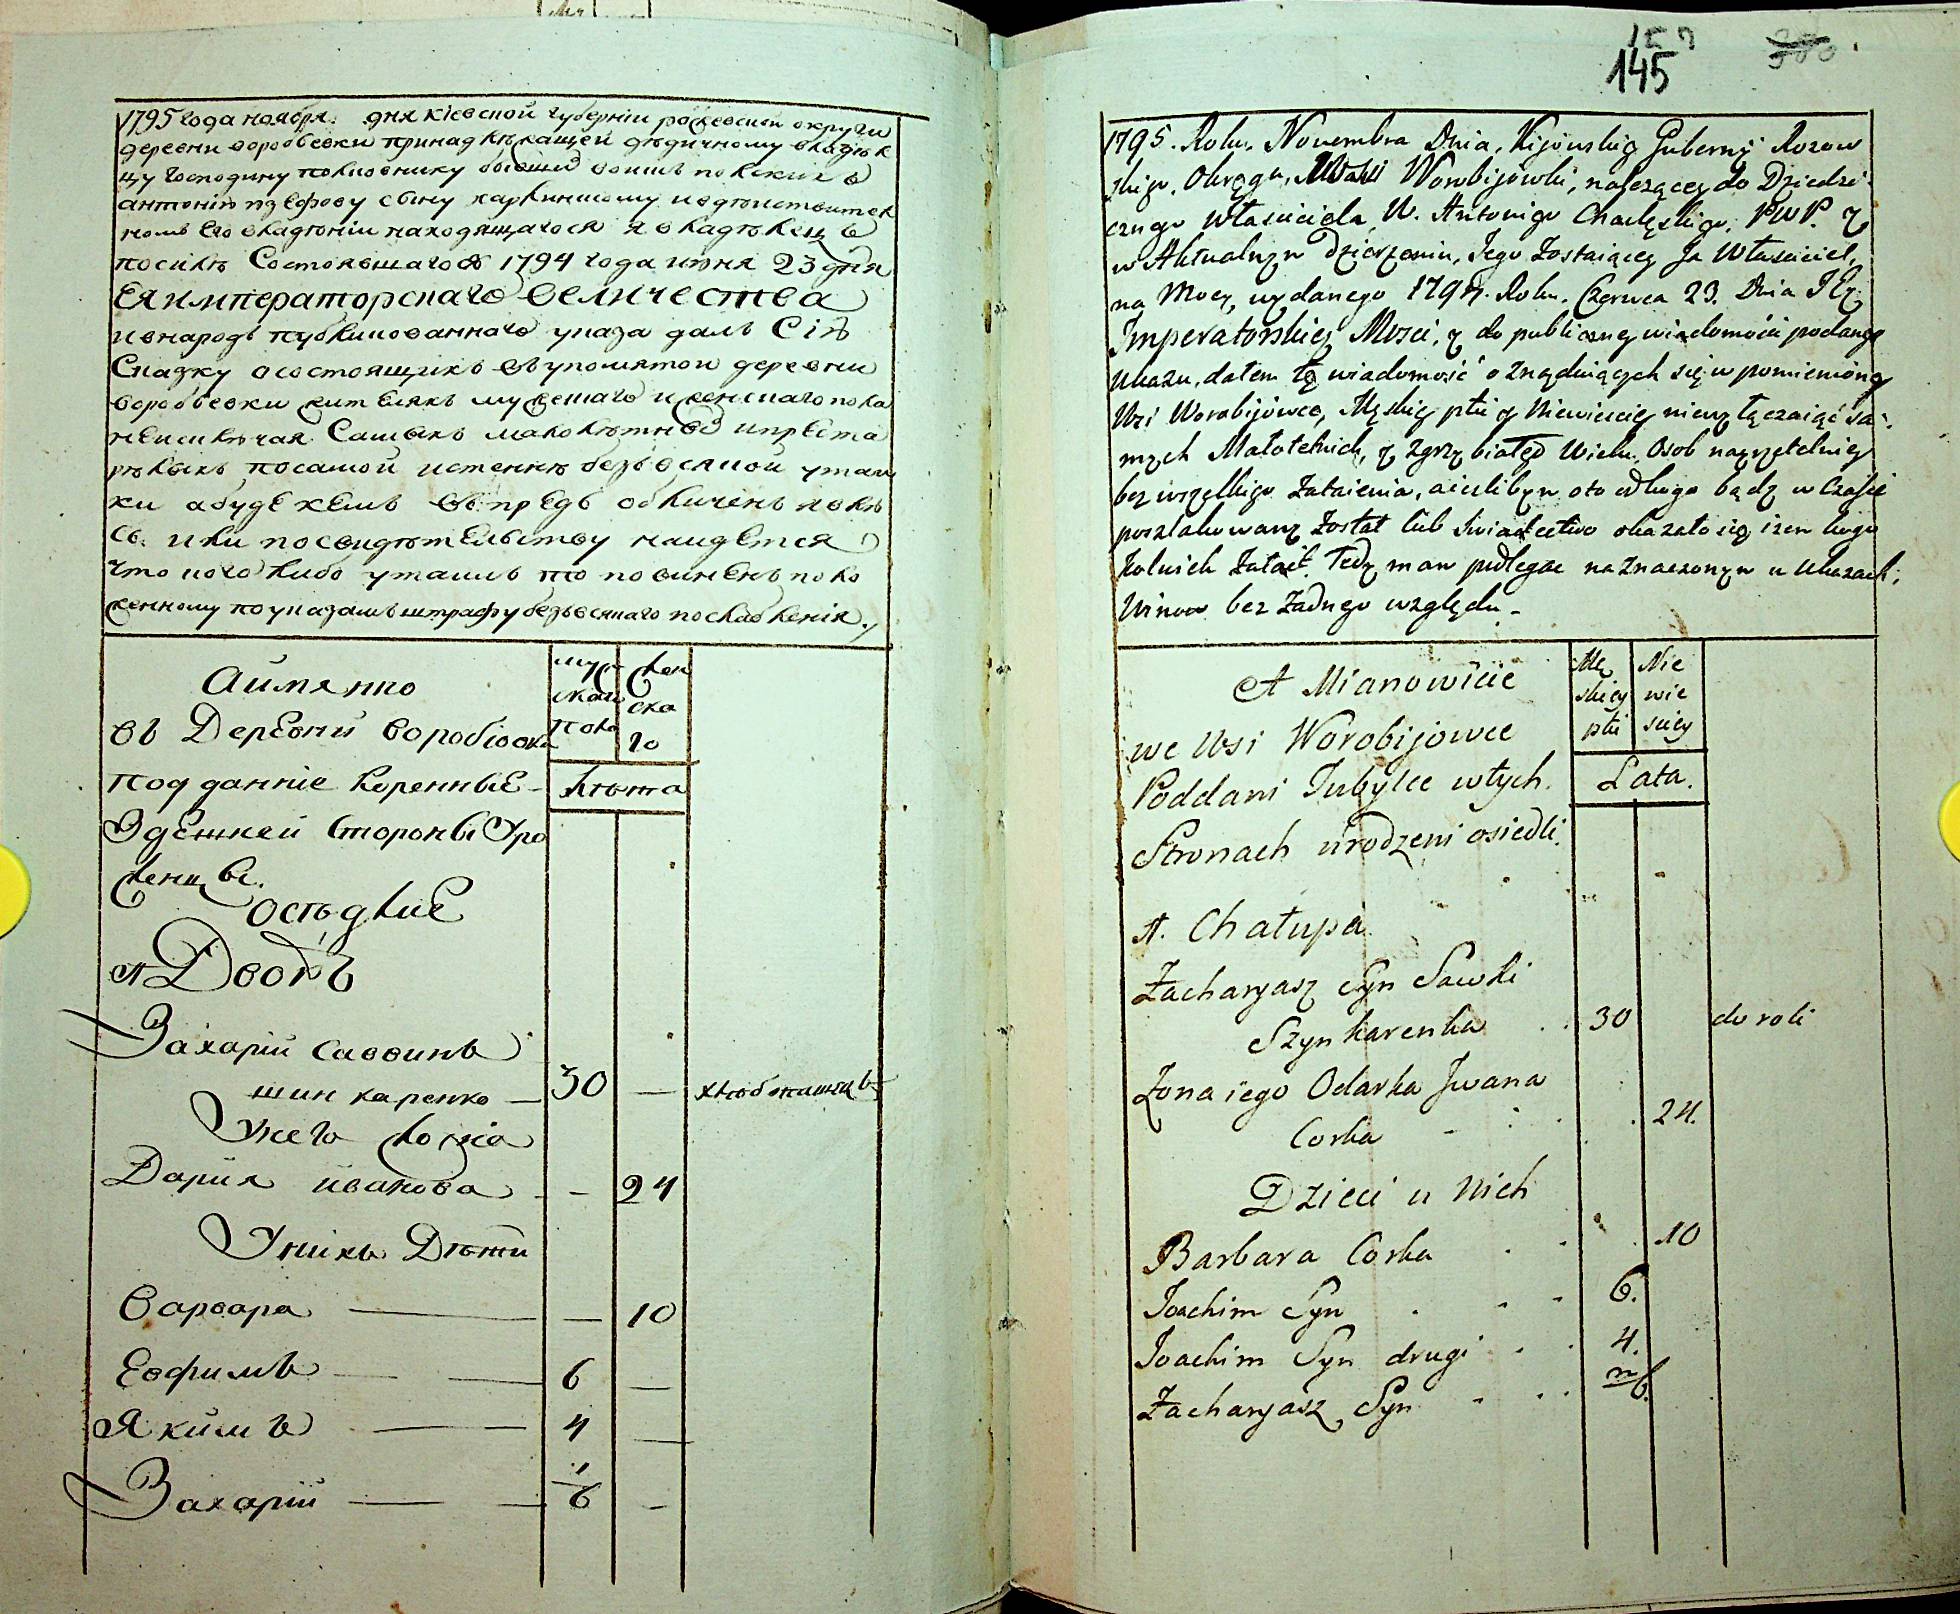 1795 года ноября. дня Кіевской губерніи округи
деревни воробьевки принадлѣжащей дѣдичному владѣл
цу господину полковнику бывших воиск полских
антонію сыну
номъ его владѣніи находящагося я владѣлец
посилѣ Состоявшагося 1794 года июня 23 дня
Ея императорскаго величества
и внародъ публикованнаго указа далъ Сію
Сказку о состоящихъ въ упомятой деревни
воробьевки жителяхъ мужескаго и женскаго пола
не исключая Самыхъ малолѣтнѣ и преста
рѣлыхъ по самой истеннѣ безъ всякой утай
ки а буде кемъ въпредь обличенъ явлю
сь. или по свидѣтельству наидется
что кого либо утаилъ то повиненъ поло
женному по указамъ штрафу безъ всякаго послабленія.
Аймянно
въ Деревни воробіовки
подданніе коренныЕ
Здешней стороны Уро
женцы.
осѣдлие
А Дворъ
муж
ской
пола
жен
ска
го
лѣта
Захарій саввинъ
шинкаренко — 30 — хлѣбопашецъ
У него жонка
Дария иванова - — 24
У нихъ Дѣти
Варвара — — 10
Евфимъ — 6 —
Якимъ — 4 —
Захарій — 1/6 —
145
1795. Roku. Novembra Dnia, Kijowskiey Guberny
skigo, Okręgu, Wsi Worobijowki, należącey do Dziedzi
cznego Właściciela W. Antoniego Charlęskiego, PWP. y
w Aktualnym dzierżeniu, Jego Zostaiącey Ja Właściciel,
na Mocy, wydanego 1794. Roku. Czerwca 23. Dnia JEy
Imperatorskiey Mosci, y do publiczney wiadomości podanego
Ukazu, dałem tę wiadomość o Znayduiących się w pomienioney
Wsi Worobijowce, Męskiey płci y Niewieściey niewyłączaiąc sa-
mych Małoletnich, y Zgrzybiałego Wieku Osob nayrzetelniey
bez wszelkiego Zataienia, a ieslibym oto od kogo bądź w Czasie
poszlakowany Został lub Swiadectwo okazało się iżem kogo
kolwiek Zataił. Tedy mam podlegać naznaczonym w Ukazach;
Winom bez żadnego względu.-
A Mianowicie
we Wsi Worobijowce
Poddani Tubylce wtych.
Stronach urodzeni osiedli.
Mę
skiey
płci
Nie
wie
sciey
Lata.
A. Chałupa
Zacharyasz Syn Sawki
Szynkarenka . . 30 do roli
Żona iego Odarka Jwana
Corka - . . . 24.
Dzieci u Nich
Barbara Corka . . . 10
Joachim Syn . . - 6.
Joachim Syn drugi . . 4.
Zacharyasz Syn - . . m/6.